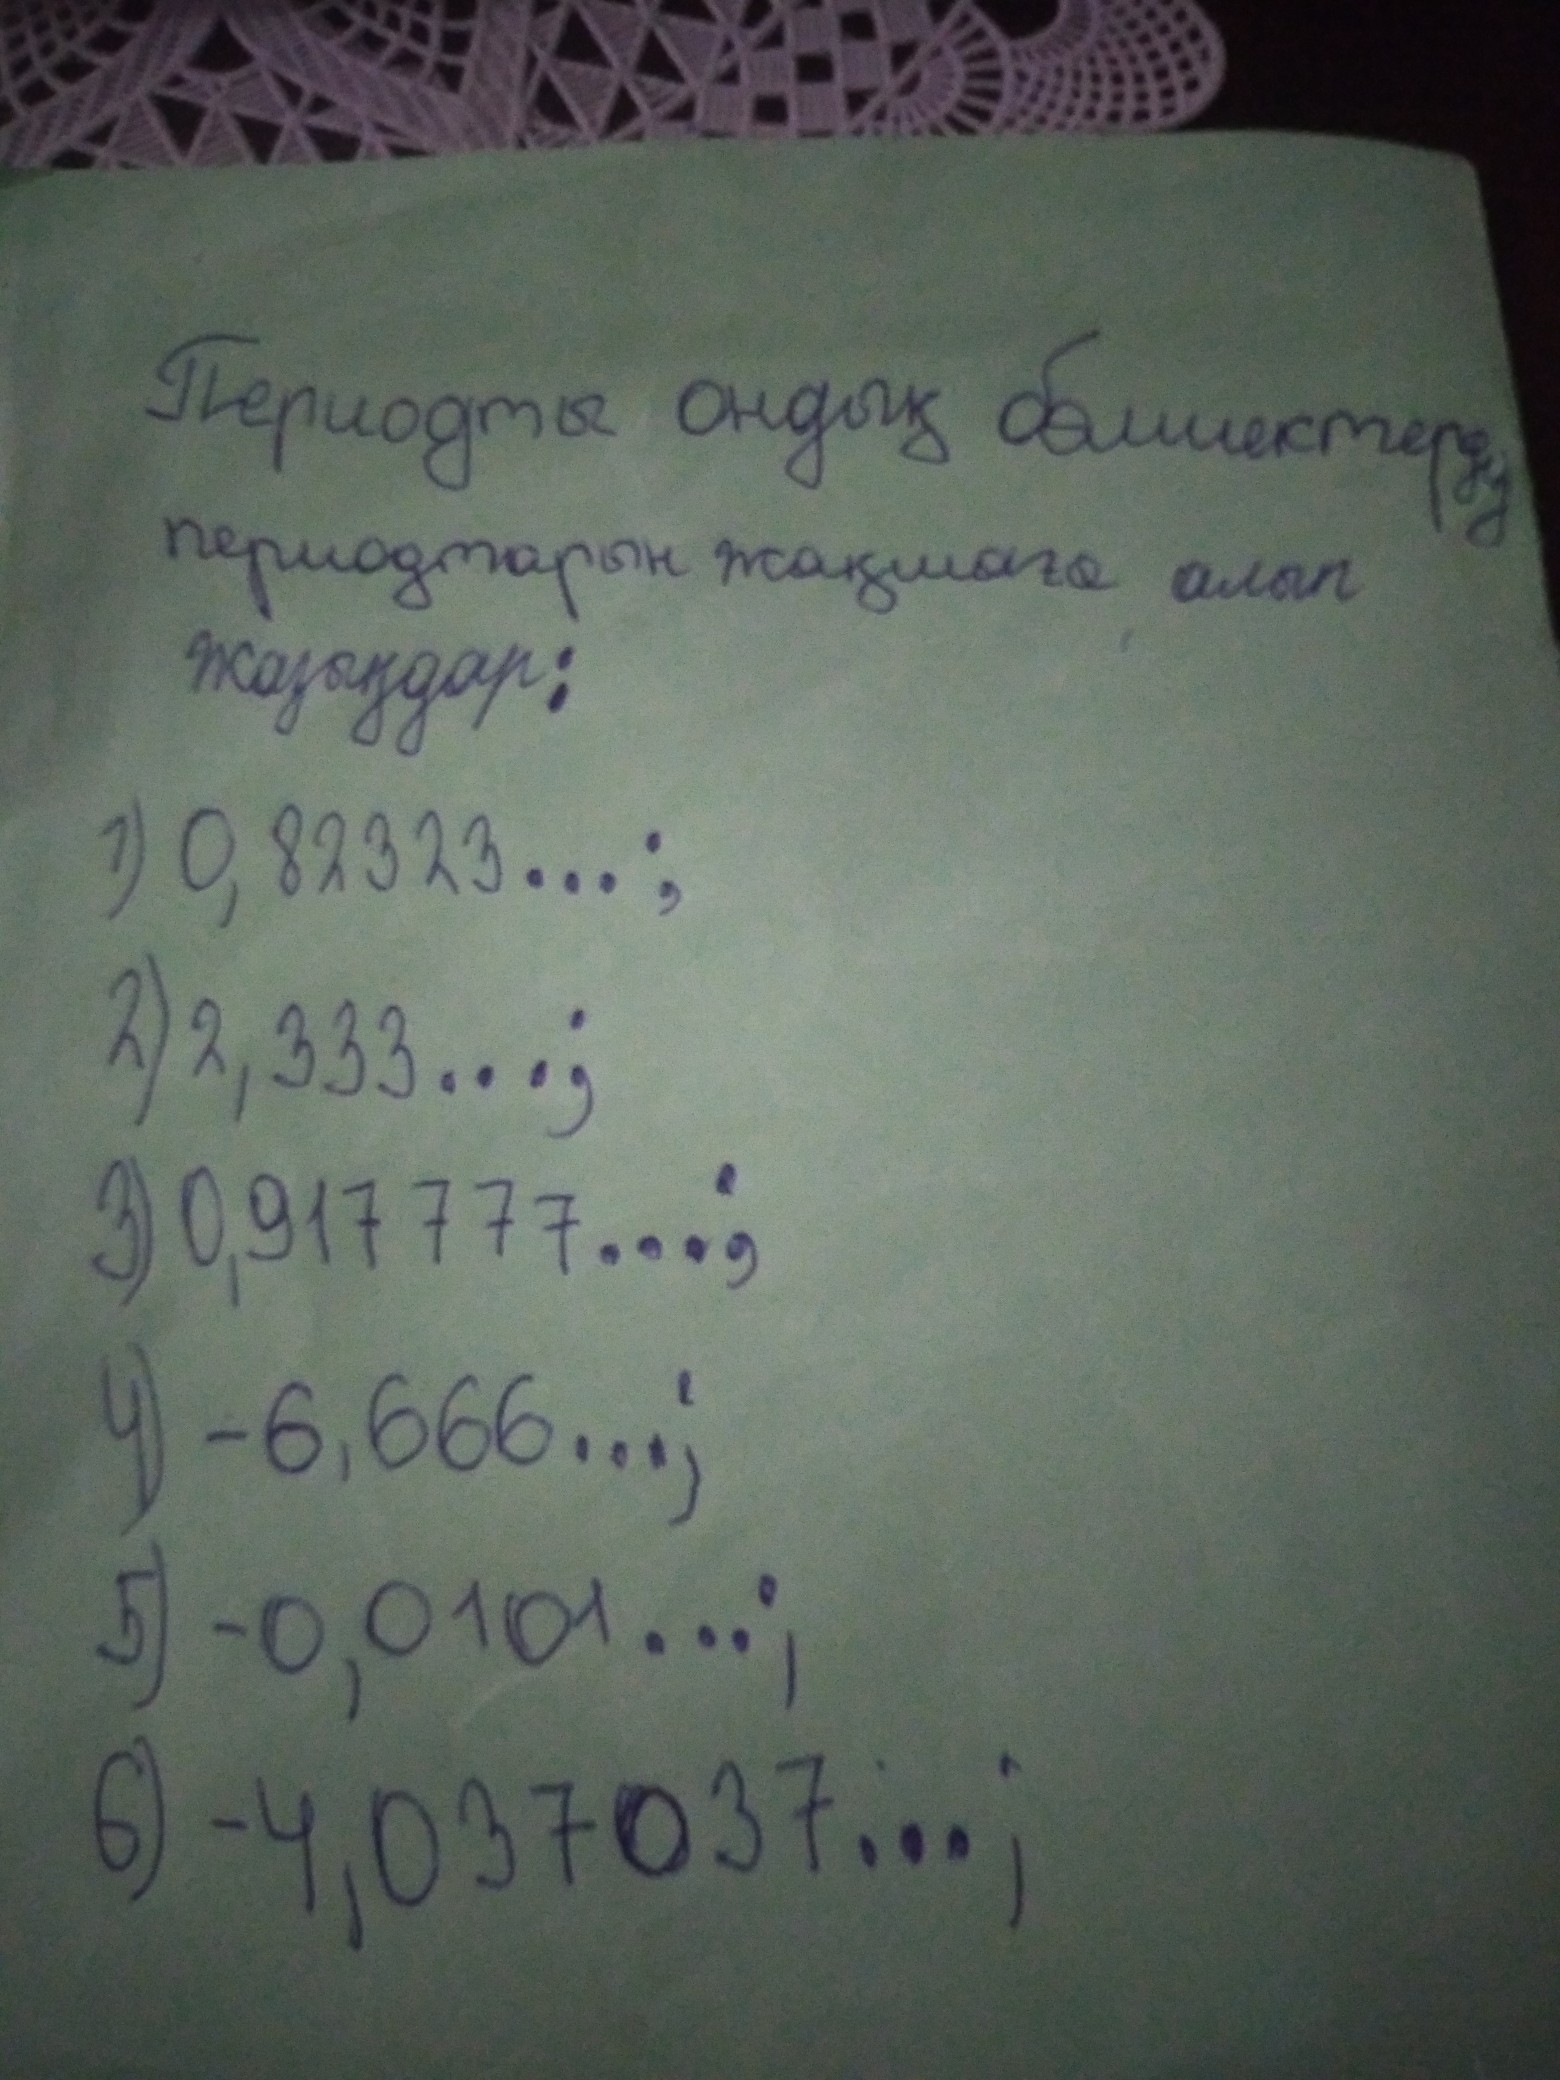 Периодты ондық бөлшектерді
периодтарын жақшаға алып
жазыңдар:
1) 0,82323...;
2) 2,333...;
3) 0,917777...;
4) -6,666...;
5) -0,0101...;
6) -4,037037...;